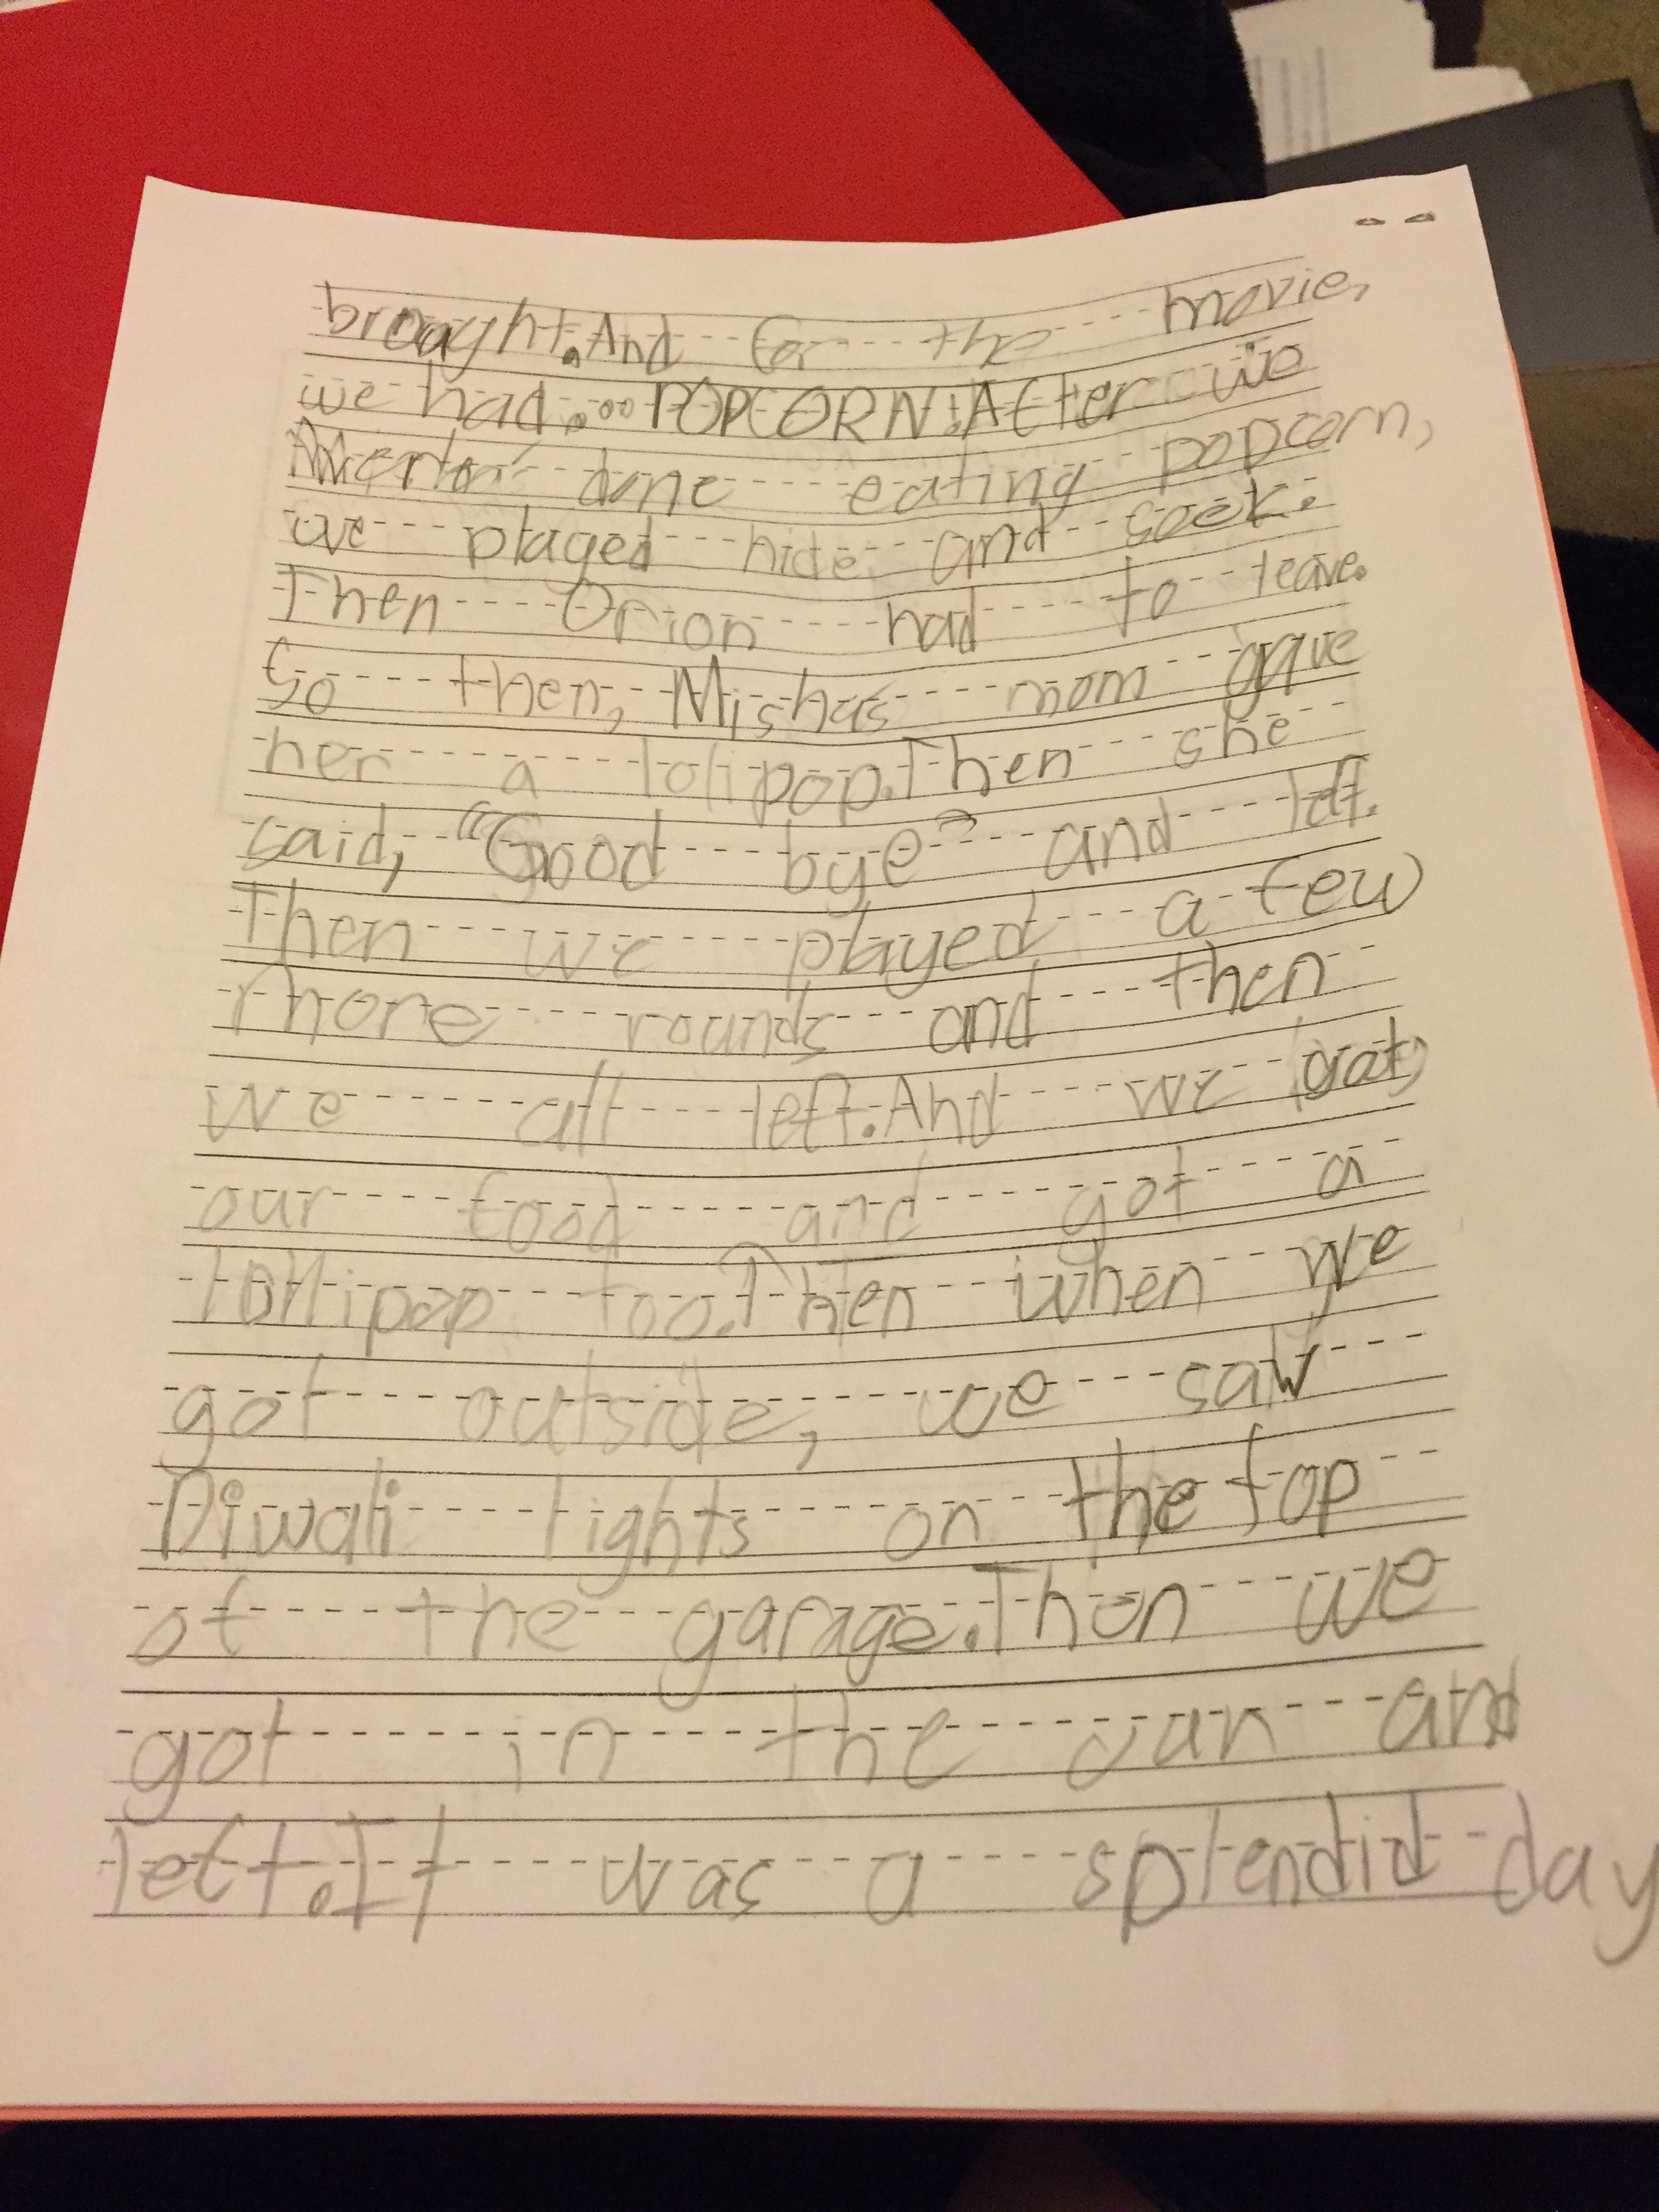 brought.And for the movie,
we had....POPCORN!After we
done eating popcorn,
we played hide and seek.
Then Orion had to leave.
So then, Misha's mom gave
her a lolipop.Then she
said, "Good bye" and left.
Then we played a few
more rounds and then
we all left.And we got
our food and got a
lollipop too.Then when we
got outside, we saw
Diwali lights on the top
of the garage.Then we
got in the car and
left.It was a splendid day